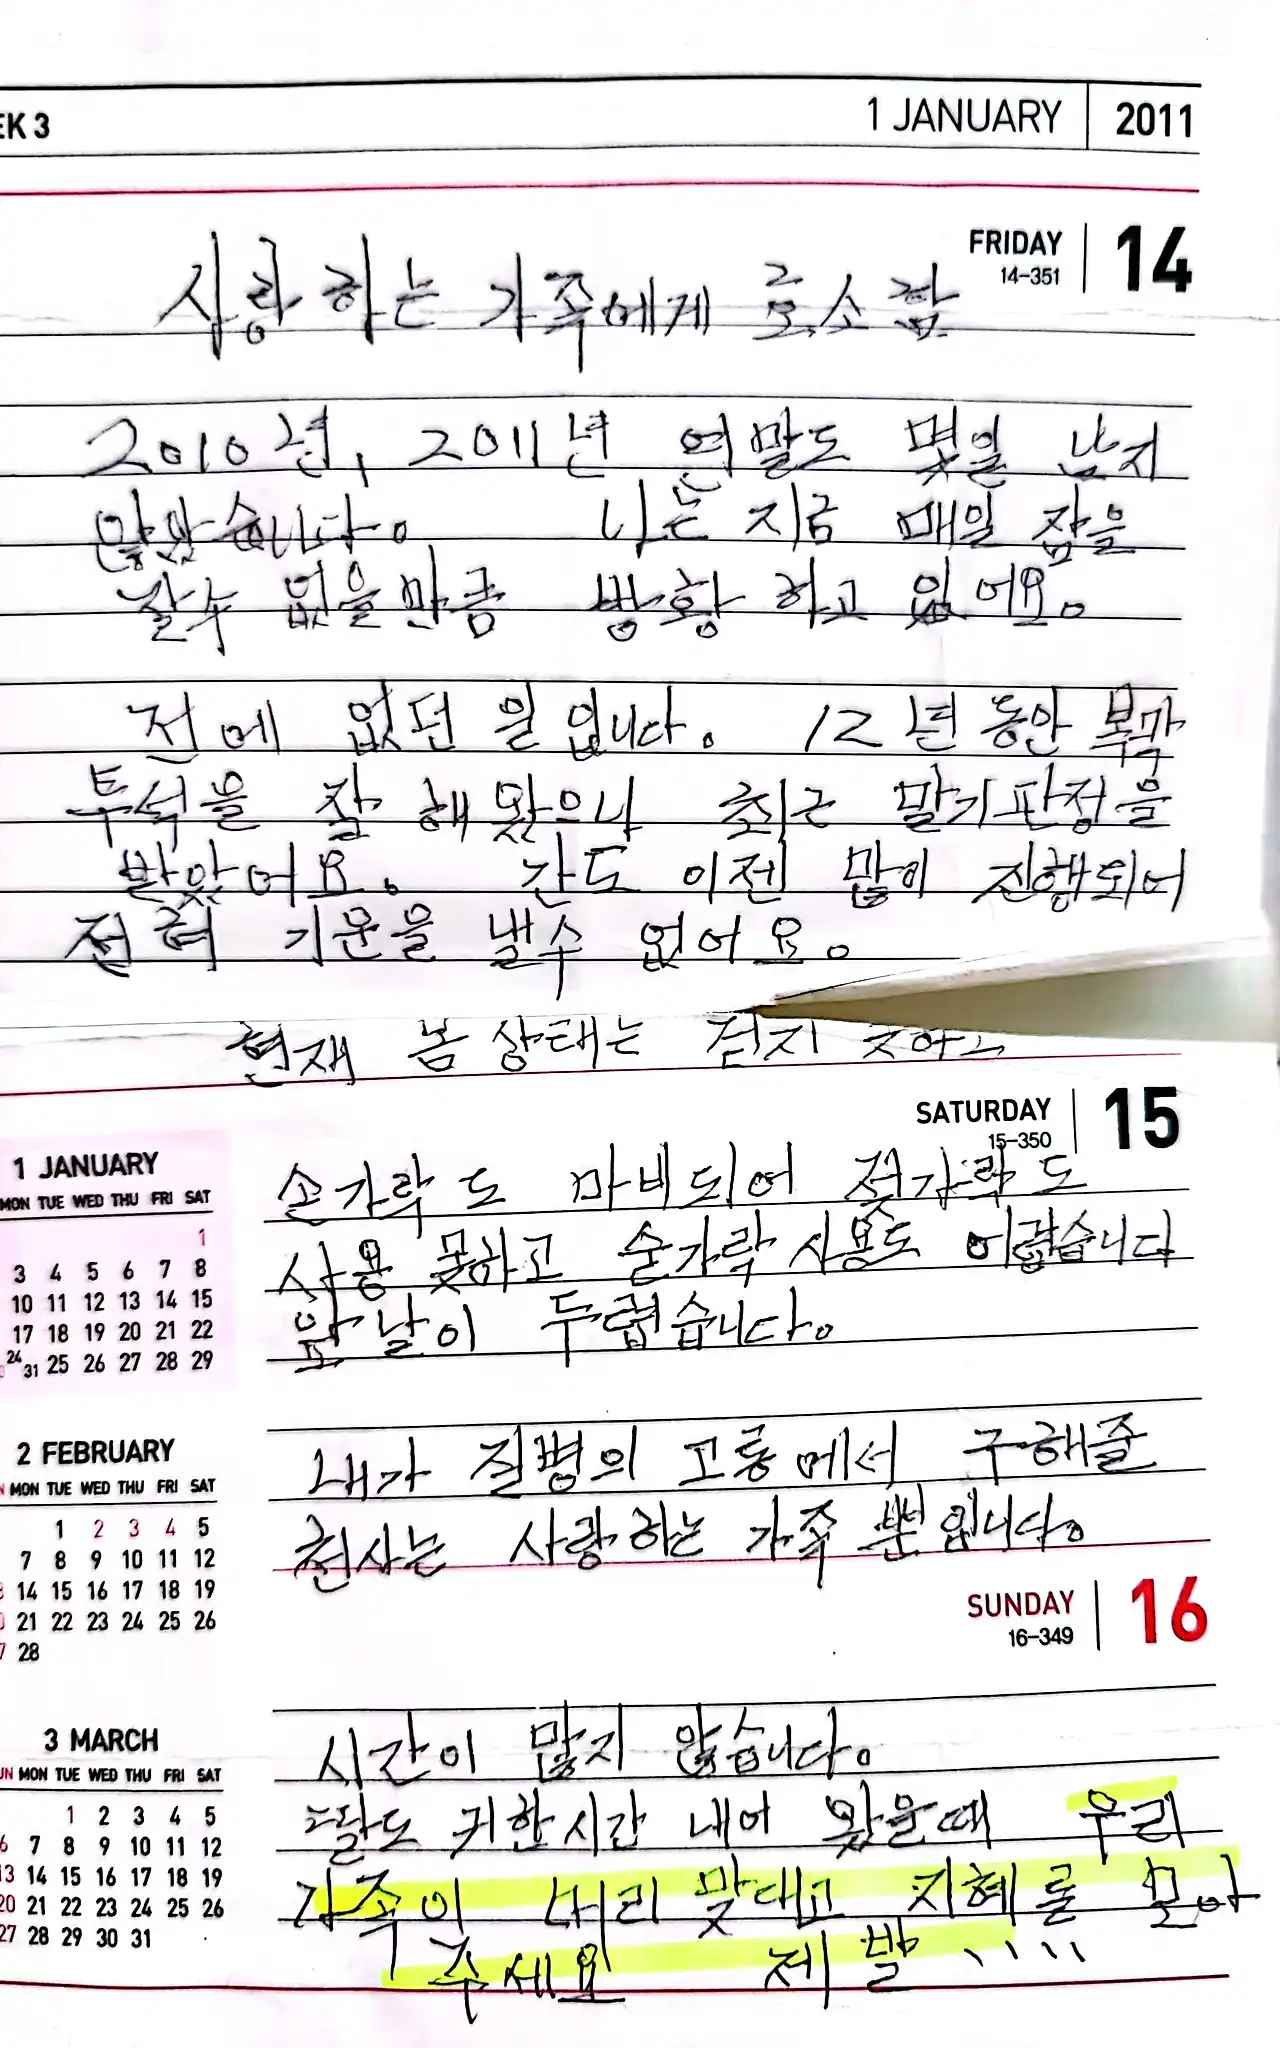 EK 3
1 JANUARY 2011
FRIDAY 14
14-351
사랑하는 가족에게 호소함
2010년, 2011년 연말도 몇일 남지
않았습니다. 나는 지금 매일 잠을
잘수 없을만큼 방황하고 있어요.
전에 없던 일입니다. 12년 동안 복막
투석을 잘 해왔으나 최근 말기판정을
받았어요. 간도 이전 많이 진행되어
전혀 기운을 낼수 없어요.
현재 몸 상태는 걷지
SATURDAY 15
15-350
손가락도 마비되어 젓가락도
사용 못하고 숟가락 사용도 어렵습니다
앞날이 두렵습니다.
내가 질병의 고통에서 구해줄
천사는 사랑하는 가족 뿐입니다.
SUNDAY 16
16-349
시간이 많지 않습니다.
딸도 귀한시간 내어 왔을때 우리
가족이 머리 맞대고 지혜를 모아
주세요 제발 、、、、、
1 JANUARY
MON TUE WED THU FRI SAT
1
3 4 5 6 7 8
10 11 12 13 14 15
17 18 19 20 21 22
24 31 25 26 27 28 29
2 FEBRUARY
MON TUE WED THU FRI SAT
1 2 3 4 5
7 8 9 10 11 12
14 15 16 17 18 19
21 22 23 24 25 26
28
3 MARCH
UN MON TUE WED THU FRI SAT
1 2 3 4 5
6 7 8 9 10 11 12
13 14 15 16 17 18 19
20 21 22 23 24 25 26
27 28 29 30 31